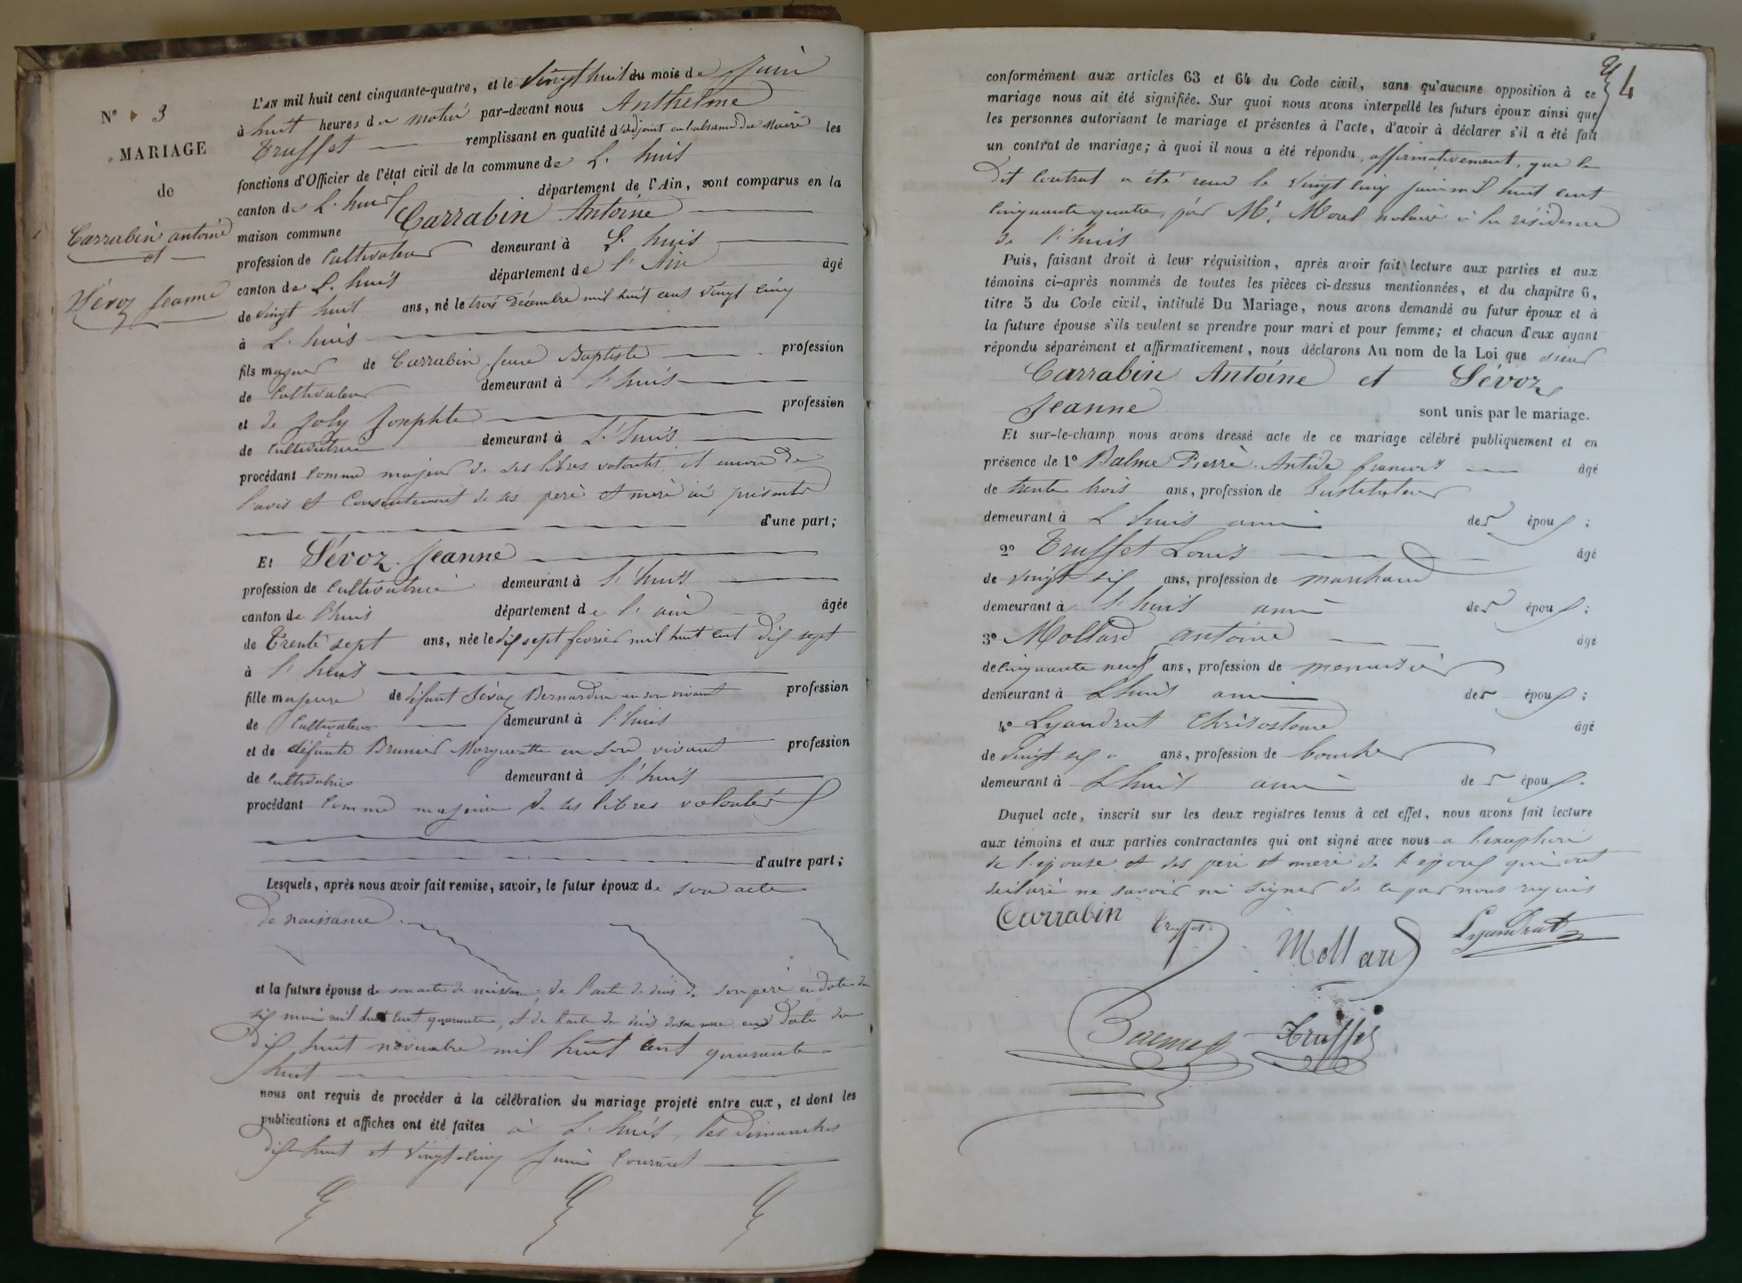 N° 3
MARIAGE
de
Carrabin antoine
et
Sévoz Jeanne
L'AN mil huit cent cinquante-quatre, et le vingt huit du mois de Juin
à huit heures du matin par-devant nous Anthelme
Truffet remplissant en qualité d'adjoint en l'absence du Maire les
fonctions d'Officier de l'état civil de la commune de L'huis
canton de L'huis département de l'Ain, sont comparus en la
maison commune Carrabin Antoine
profession de Cultivateur demeurant à L'huis
canton de L'huis département de l'Ain âgé
de vingt huit ans, né le trois décembre mil huit cent vingt cinq
à L'huis
fils majeur de Carrabin Jean Baptiste profession
de Cultivateur demeurant à L'huis
et de Joly Josephte profession
de Cultivatrice demeurant à L'huis
procédant comme majeur de ses libres volontés et encore de
l'avis et Consentement de ses père et mère ici présents
d'une part;
Et Sévoz Jeanne
profession de Cultivatrice demeurant à L'huis
canton de L'huis département de l'ain âgée
de Trente sept ans, née le dix sept février mil huit cent dix sept
à L'huis
fille majeure de défunt Sévoz Bernardin en son vivant profession
de Cultivateur demeurant à L'huis
et de défunte Brunier Marguerite en son vivant profession
de Cultivatrice demeurant à L'huis
procédant comme majeure de ses libres volontés
d'autre part;
Lesquels, après nous avoir fait remise, savoir, le futur époux de son acte
de naissance
et la future épouse de son acte de naissance, de l'acte de décès de son père en date du
dix mai mil huit cent quarante, et de l'acte de décès de sa mère en date du
dix huit novembre mil huit cent quarante
huit
nous ont requis de procéder à la célébration du mariage projeté entre eux, et dont les
publications et affiches ont été faites à L'huis, les dimanches
dix huit et vingt-cinq Juin courant
4
conformément aux articles 63 et 64 du Code civil, sans qu'aucune opposition à ce
mariage nous ait été signifiée. Sur quoi nous avons interpellé les futurs époux ainsi que
les personnes autorisant le mariage et présentes à l'acte, d'avoir à déclarer s'il a été fait
un contrat de mariage; à quoi il nous a été répondu affirmativement, que le
dit Contrat a été reçu le vingt cinq juin mil huit cent
cinquante quatre par Me Morel notaire à la résidence
de L'huis
Puis, faisant droit à leur réquisition, après avoir fait lecture aux parties et aux
témoins ci-après nommés de toutes les pièces ci-dessus mentionnées, et du chapitre 6,
titre 5 du Code civil, intitulé Du Mariage, nous avons demandé au futur époux et à
la future épouse s'ils veulent se prendre pour mari et pour femme; et chacun d'eux ayant
répondu séparément et affirmativement, nous déclarons Au nom de la Loi que sieur
Carrabin Antoine et Sévoz
Jeanne sont unis par le mariage.
Et sur-le-champ nous avons dressé acte de ce mariage célébré publiquement et en
présence de 1° Balme Pierre Antide françois âgé
de trente trois ans, profession de Instituteur
demeurant à L'huis ami des époux;
2° Truffet Louis âgé
de vingt six ans, profession de marchand
demeurant à L'huis ami des époux;
3° Mollard antoine âgé
de cinquante neuf ans, profession de menuisier
demeurant à L'huis ami des époux;
4° Lyaudrat Chrisostome âgé
de vingt six ans, profession de boucher
demeurant à L'huis ami des époux.
Duquel acte, inscrit sur les deux registres tenus à cet effet, nous avons fait lecture
aux témoins et aux parties contractantes qui ont signé avec nous a l'exception
de l'épouse et des père et mère de l'époux qui ont
déclaré ne savoir ni signer de ce par nous requis
Carrabin Truffet Mollard Lyaudrat
Balme Truffet